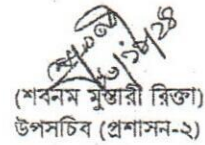 (শবনম মুস্তারী রিক্তা)
উপসচিব (প্রশাসন-২)